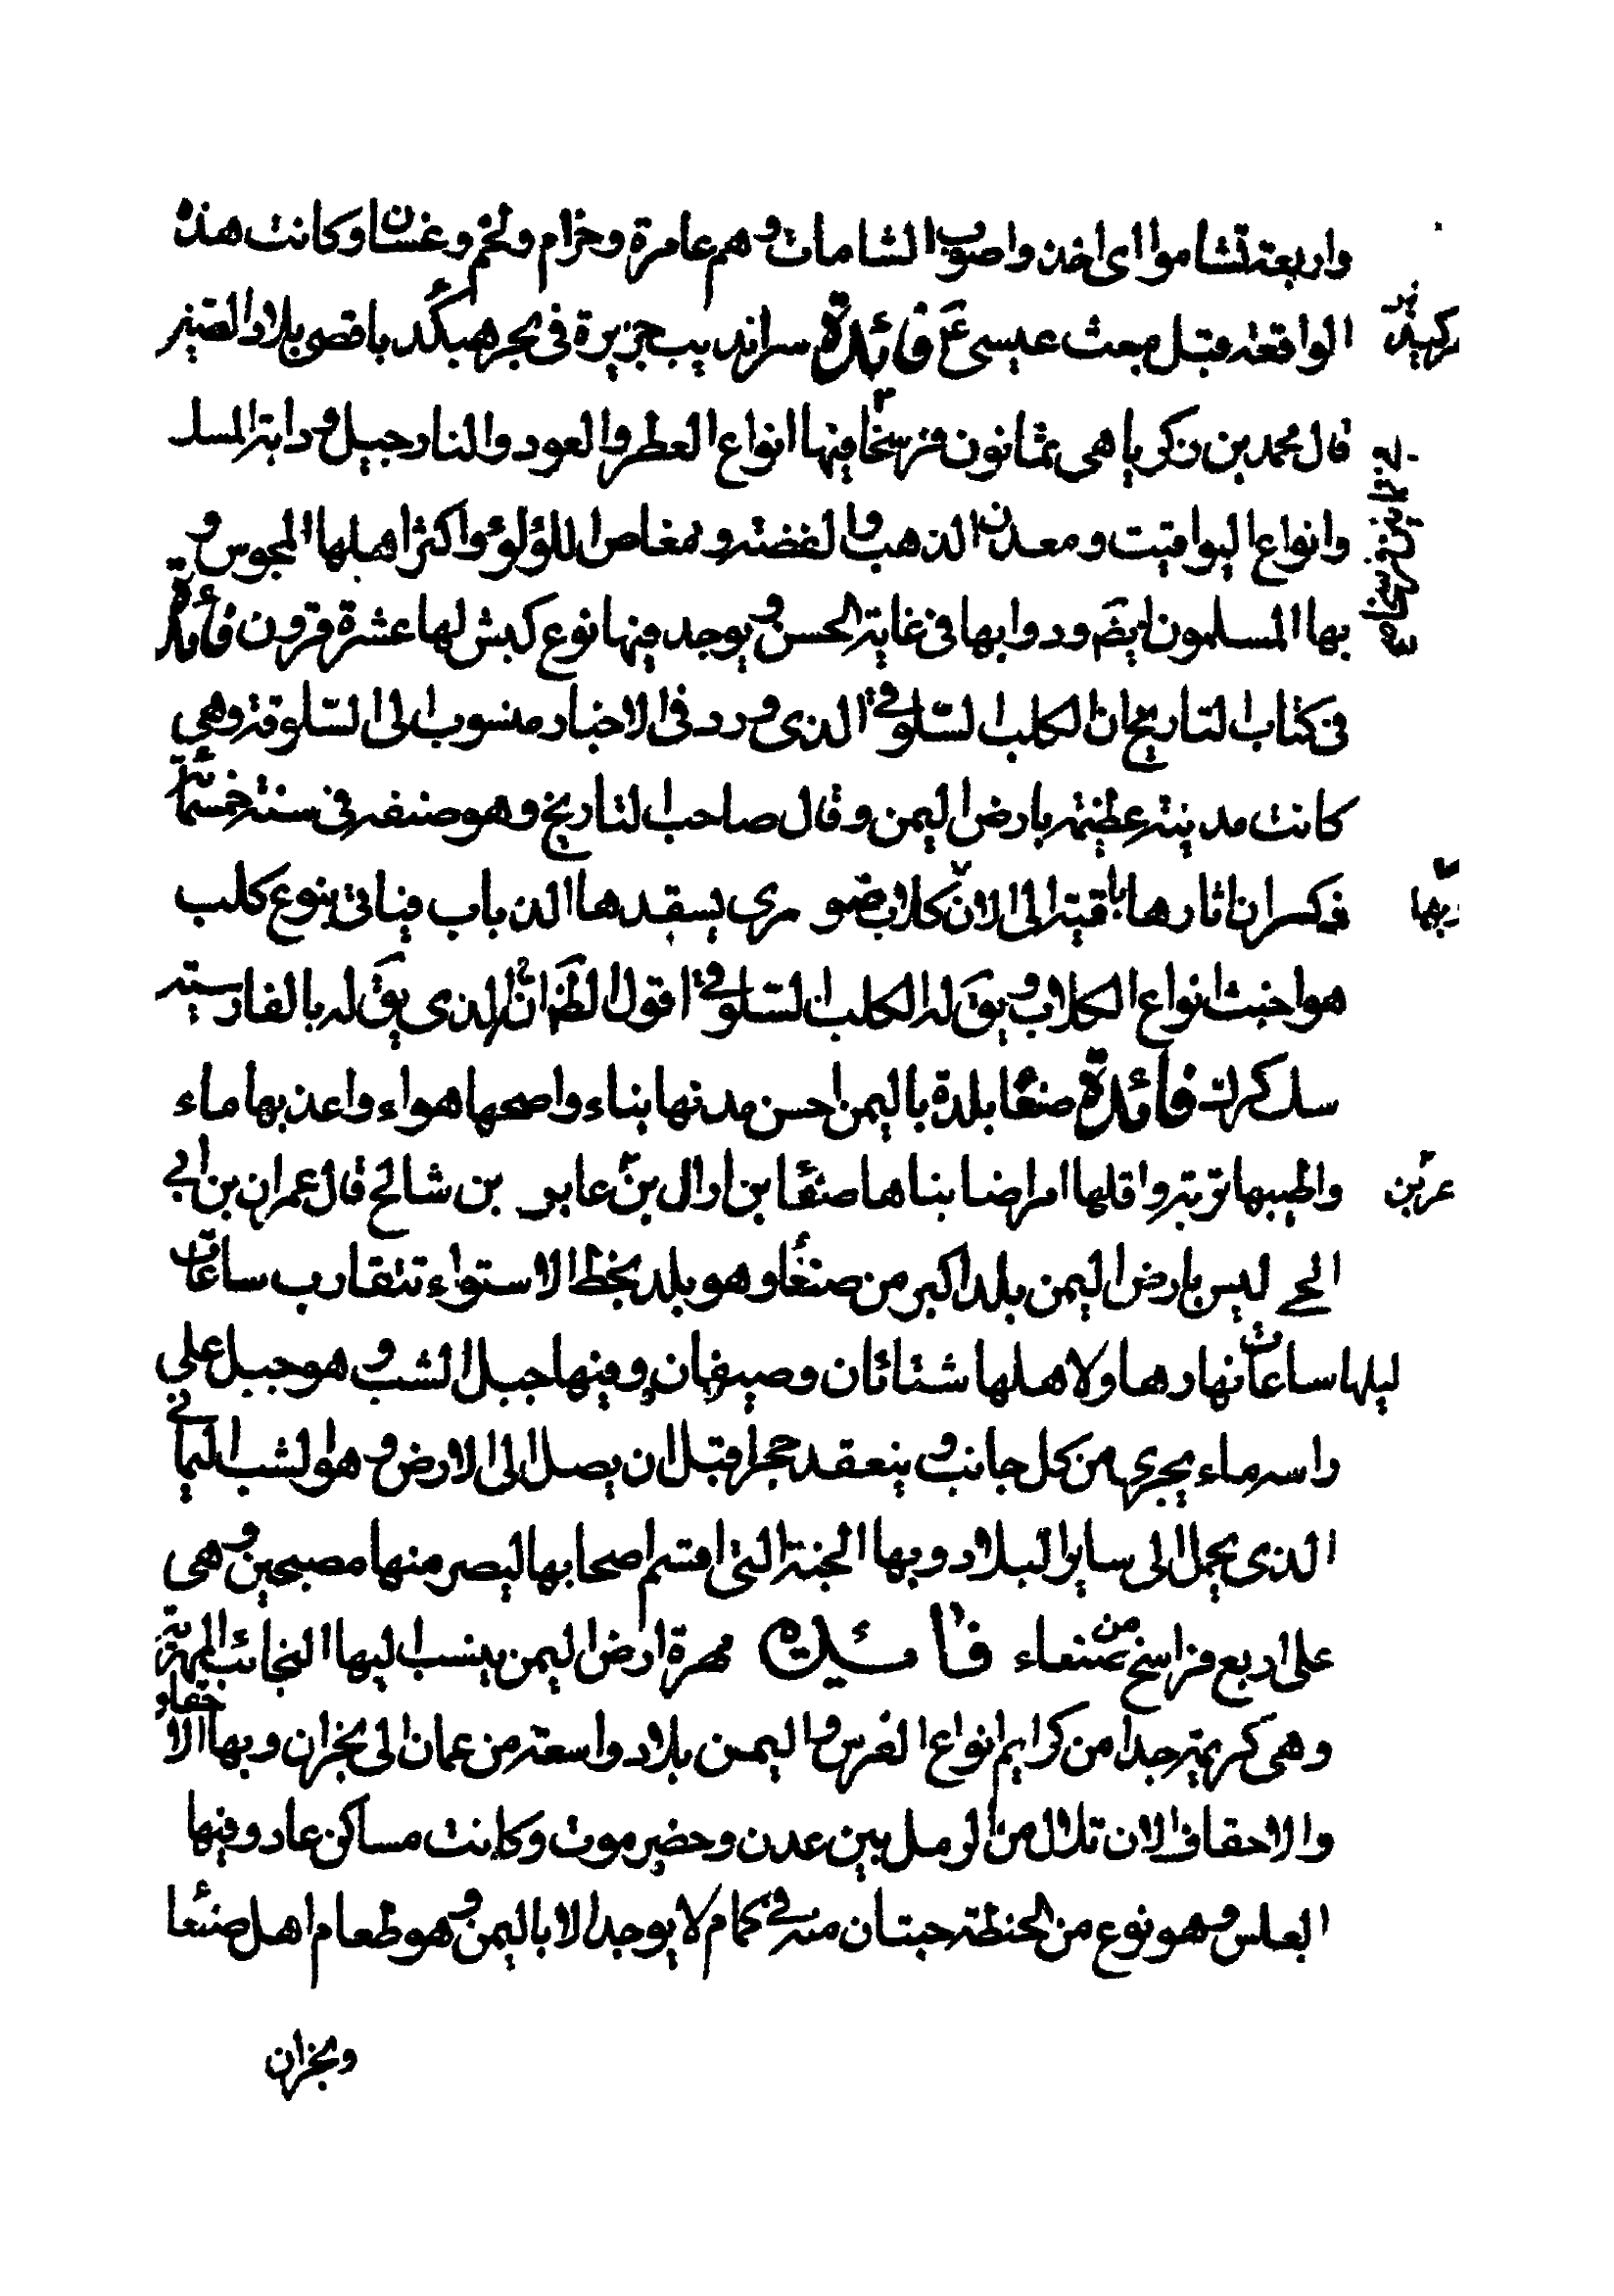 واربعة تشاموا اى اخذوا صوب الشامات وهم عامرة وخزام ولخم وغسان وكانت هذه
الواقعة قبل مبعث عيسى ع فائدة سرانديب جزيرة فى بحر هبكند باقصى بلاد الصين
قال محمد بن زكريا هى ثمانون فرسخا فيها انواع العطر والعود والنارجيل ودابة المسك
وانواع اليواقيت ومعدن الذهب والفضة ومغاص اللؤلؤ واكثر اهلها المجوس و
بها المسلمون ايض ودوابها فى غاية الحسن ويوجد فيها نوع كبش لها عشرة قرون فائدة
فى كتاب التاريخ ان الكلب السلوقى الذى ورد فى الاخبار منسوب الى السلوقة وهى
كانت مدينة عظيمة بارض اليمن وقال صاحب التاريخ وهو صنفه فى سنة خمسمائة
فذكر ان اثارها باقية الى الان كلاب ضوارى يسفدها الذباب فياتى بنوع كلب
هو اخبث انواع الكلاب ويق له الكلب السلوقى اقول الظ انه الذى يق له بالفارسية
سك كرك فائدة صنعا بلدة باليمن احسن مدنها بناء واصحها هواء واعذبها ماء
واطيبها تربة واقلها امراضا بناها صنعا بن ازال بن عابر بن شالخ قال عمران بن ابى
الحى ليس بارض اليمن بلد اكبر من صنعا وهو بلد بخط الاستواء تتقارب ساعات
ليلها ساعات نهارها ولاهلها شتاءان وصيفان وفيها جبل الشب وهو جبل على
راسه ماء يجرى من كل جانب وينعقد حجرا قبل ان يصل الى الارض وهو الشب اليمانى
الذى يحمل الى ساير البلاد وبها الجنة التى اقسم اصحابها ليصرمنها مصبحين وهى
على اربع فراسخ من صنعاء فائدة مهرة ارض اليمن ينسب اليها النجائب المهرية
وهى كريمة جدا من كرايم انواع الفرس واليمن بلاد واسعة من عمان الى نجران وبها الاحقاف
والاحقاف الان تلال من الرمل بين عدن وحضرموت وكانت مساكن عاد وفيها
العلس وهو نوع من الحنطة حبتان منه فى كمام لا يوجد الا باليمن وهو طعام اهل صنعا
ونجران